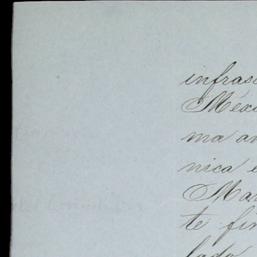 infrasc
Méxi
ma an
nica e
Mar
te fir
lado